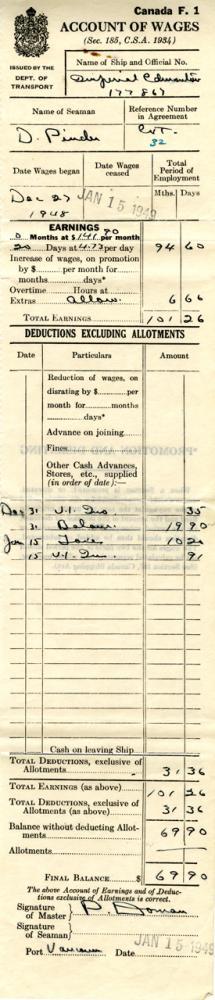 Canada F. 1
ACCOUNT OF WAGES
(Sec. 185, C.S.A. 1934)
ISSUED BY THE
DEPT. OF
TRANSPORT
Name of Ship and Official No.
Imperial Edmonton
177867
Name of Seaman
Reference Number
in Agreement
D. Pinder
32
Date Wages began
Date Wages
ceased
Total
Period of
Employment
Mths. Days
Dec 27
1948
JAN 15 1949
EARNINGS
0 Months at $141.90 per month
20 Days at 4.73 per day 94 60
Increase of wages, on promotion
by $ per month for
months days*
Overtime Hours at
Extras allow. 6 66
TOTAL EARNINGS 101 26
DEDUCTIONS EXCLUDING ALLOTMENTS
Date Particulars Amount
Reduction of wages, on
disrating by $ per
month for months
days*
Advance on joining
Fines
Other Cash Advances,
Stores, etc., supplied
(in order of date):—
Dec 31 U.I. Ins. 35
31 19 90
Jan 15 10 20
15 U.I. Ins. 91
Cash on leaving Ship
TOTAL DEDUCTIONS, exclusive of
Allotments 31 36
TOTAL EARNINGS (as above) 101 26
TOTAL DEDUCTIONS, exclusive of
Allotments (as above) 31 36
Balance without deducting Allot-
ments 69 90
Allotments
FINAL BALANCE $ 69 90
The above Account of Earnings and of Deduc-
tions exclusive of Allotments is correct.
Signature
of Master
Signature
of Seaman
Port Vancouver Date JAN 15 1949